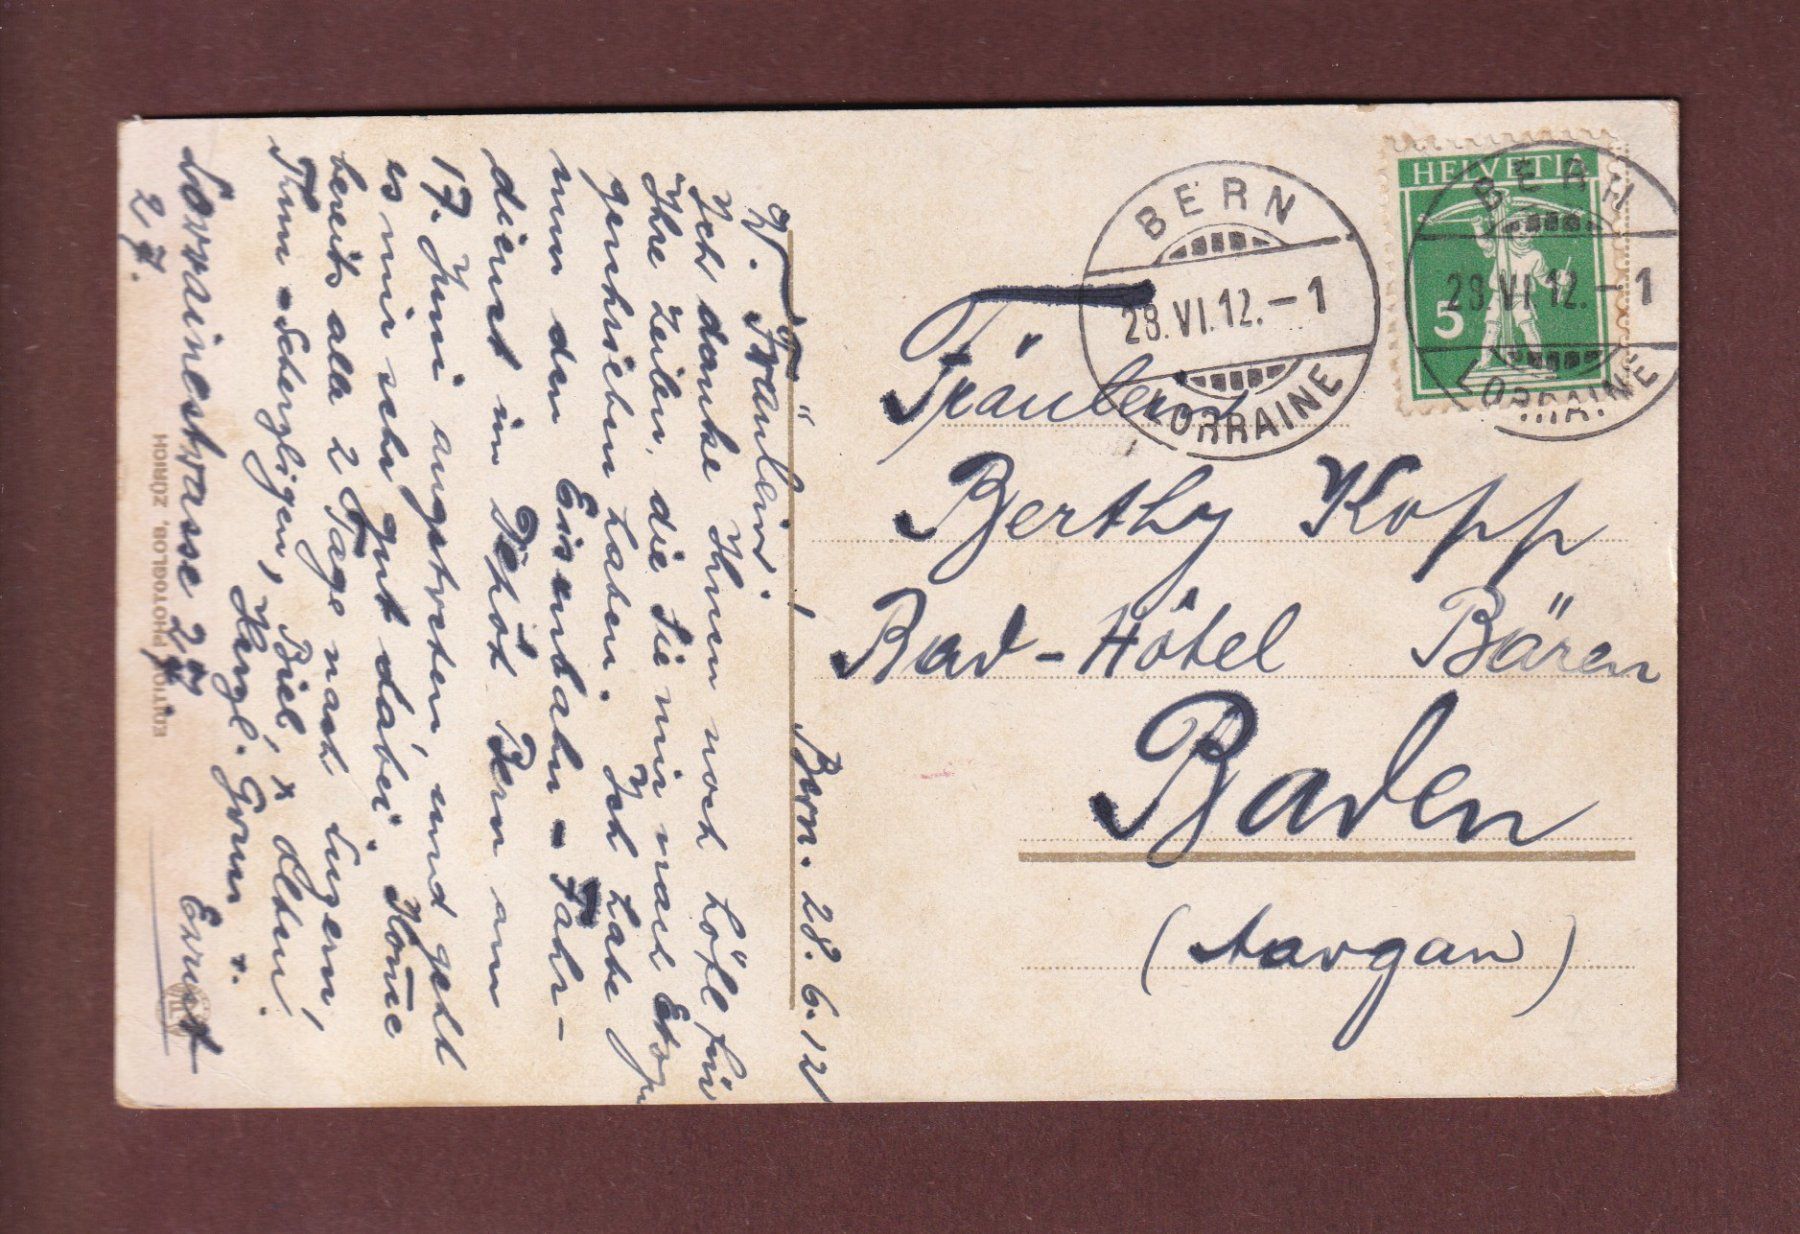 Bern. 28. 6. 12
W. Fräulein!
Ich danke Ihnen noch höfl. für
Ihre Zeilen, die Sie mir nach
geschrieben haben. Ich habe
nun den Eisenbahn-Fahr-
dienst im Depôt Bern am
17. Juni angetreten und geht
es mir sehr gut dabei. Komme
bereits alle 2 Tage nach Luzern,
Thun-Scherzligen, Biel, & Olten.
Herzl. Gruss v.
Lorrainestrasse 27 Ernst
27.
EDITION PHOTOGLOB, ZÜRICH
HELVETIA
5
BERN
28.VI.12.–1
LORRAINE
BERN
28.VI.12.–1
LORRAINE
Fräulein
Berthy Kopp
Bad-Hôtel Bären
Baden
(Aargau)